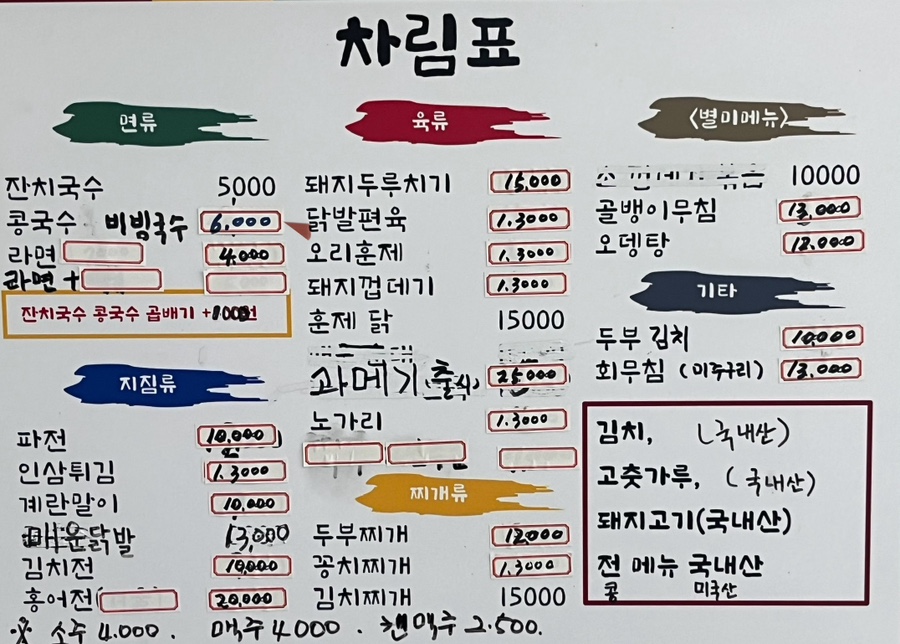 차림표
면류
잔치국수 5000
콩국수 비빔국수 6,000
라면 4,000
라면 +
잔치국수 콩국수 곱배기 +1000원
지짐류
파전 10,000
인삼튀김 1.3000
계란말이 10,000
매운닭발 13,000
김치전 10,000
홍어전 20,000
육류
돼지두루치기 15,000
닭발편육 1.3000
오리훈제 1.3000
돼지껍데기 1.3000
훈제 닭 15000
과메기(출시) 25000
노가리 1.3000
찌개류
두부찌개 12000
꽁치찌개 1.3000
김치찌개 15000
<별미메뉴>
10000
골뱅이무침 13,000
오뎅탕 12,000
기타
두부 김치 10,000
회무침 (미주구리) 13,000
김치, (국내산)
고춧가루, (국내산)
돼지고기(국내산)
전 메뉴 국내산
콩 미국산
※ 소주 4.000. 맥주 4000. 캔맥주 2.500.